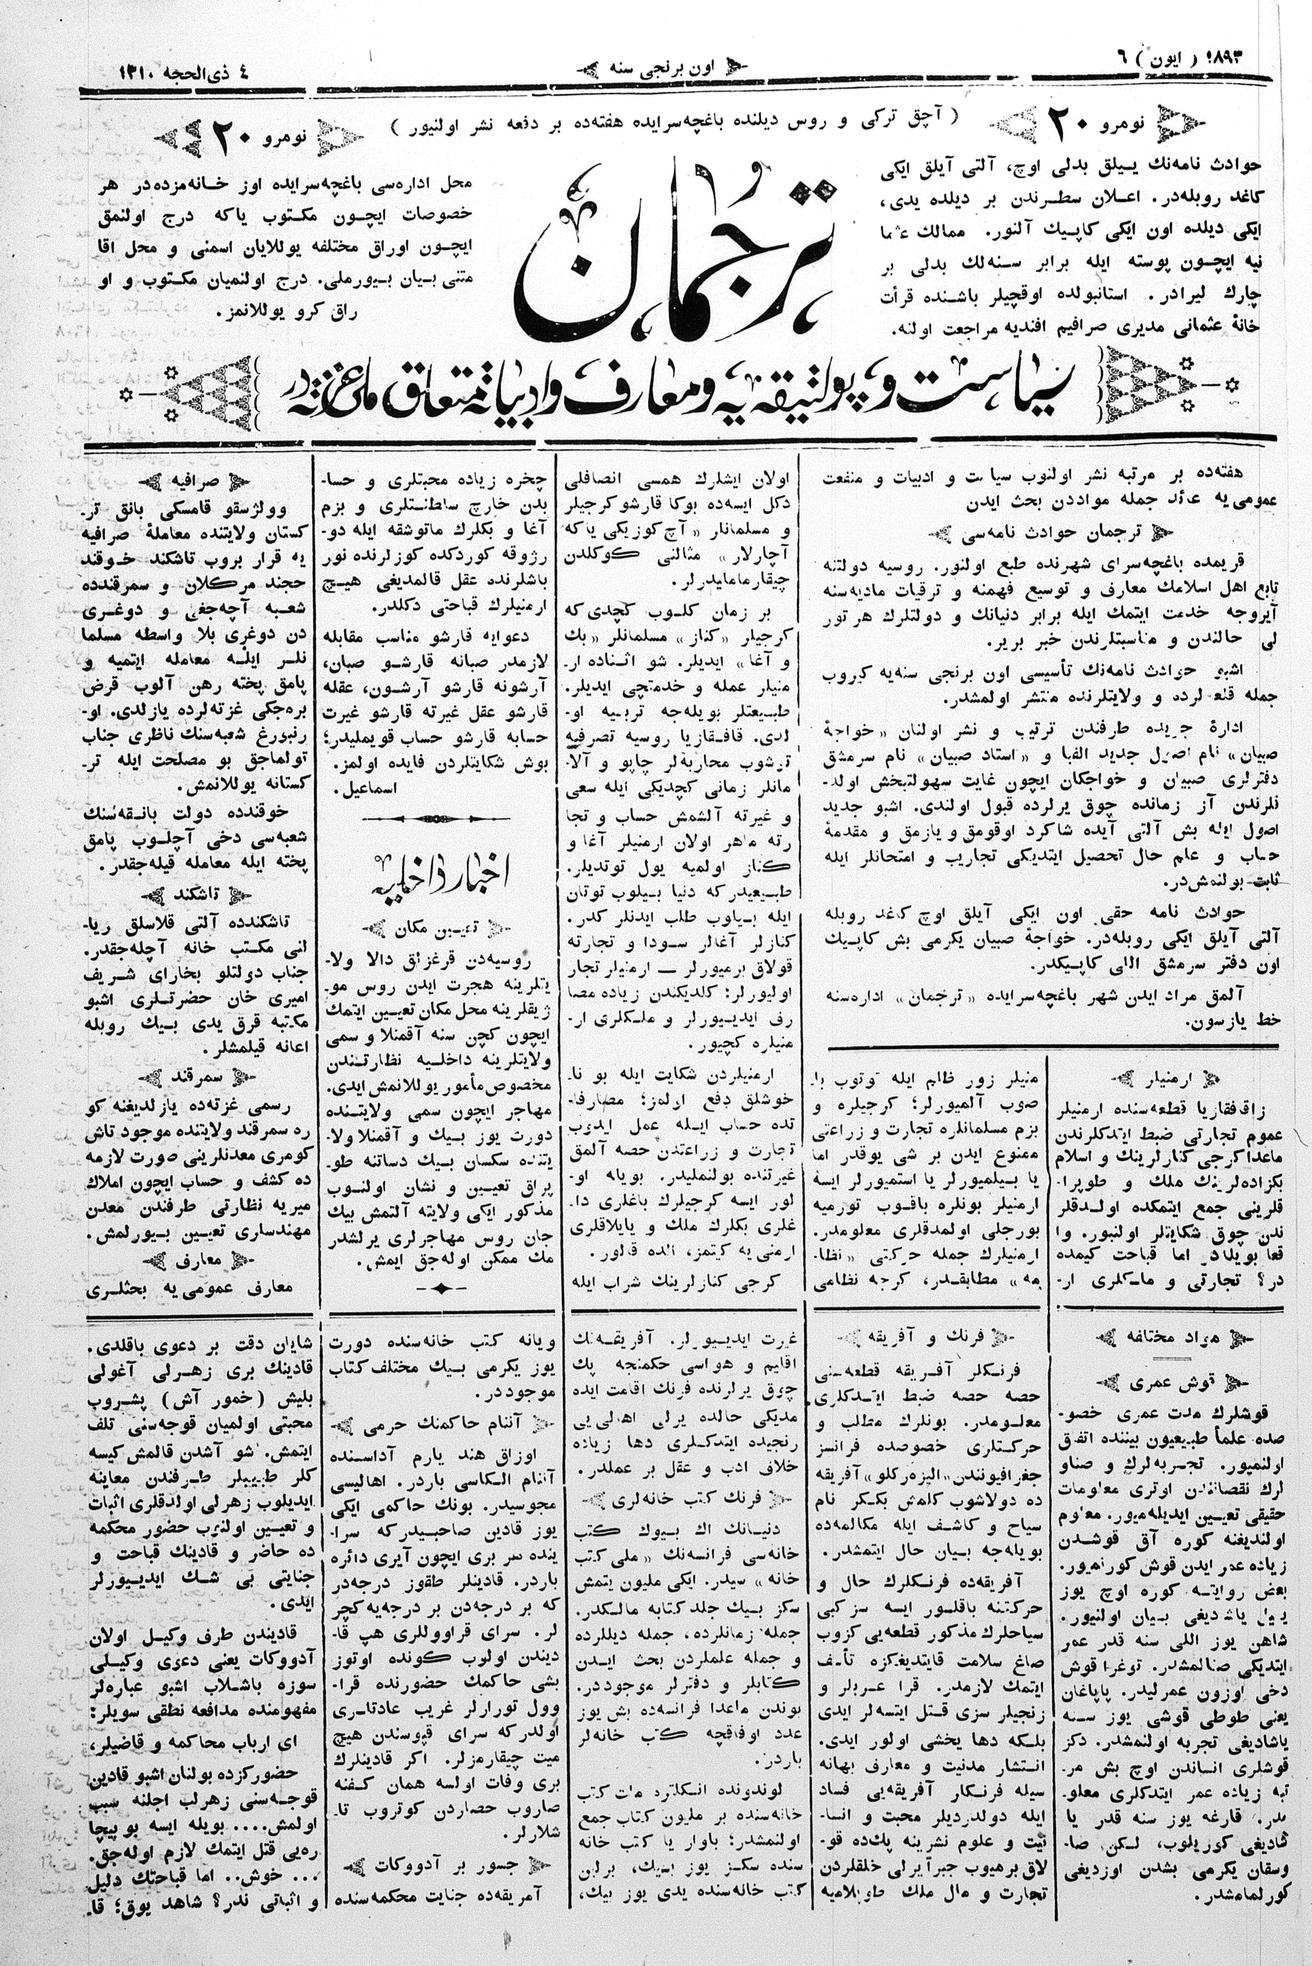 ١٨٩٣ ( ایون ) ٦
اون برنجی سنه
٤ ذی الحجه ١٣١٠
نومرو ٢٠
( آچق ترکی و روس دیلنده باغچه‌سرایده هفته‌ده بر دفعه نشر اولنیور )
نومرو ٢٠
حوادث نامه‌نك ییلق بدلی اوچ، آلتی آیلق ایکی
کاغد روبله‌در. اعلان سطرندن بر دیلده یدی،
ایکی دیلده اون ایکی کاپیك آلنور. ممالك عثما
نیه ایچون پوسته ایله برابر سنه‌لك بدلی بر
چارك لیرادر. استانبولده اوقچیلر باشنده قرأت
خانهٔ عثمانی مدیری صرافیم افندیه مراجعت اولنه.
ترجمان
محل اداره‌سی باغچه‌سرایده اوز خانه‌مزده‌در هر
خصوصات ایچون مکتوب یاکه درج اولنمق
ایچون اوراق مختلفه یوللایان اسمنی و محل اقا
متنی بیان بیورملی. درج اولنمیان مکتوب و او
راق کرو یوللانمز.
سیاست و پولتیقه‌یه و معارف و ادبیاته متعلق ملی غزته‌در
هفته‌ده بر مرتبه نشر اولنوب سیاست و ادبیات و منفعت
عمومی‌یه عائد جمله مواددن بحث ایدن
ترجمان حوادث نامه‌سی
قریمده باغچه‌سرای شهرنده طبع اولنور. روسیه دولتنه
تابع اهل اسلامك معارف و توسیع فهمنه و ترقیات مادیه‌سنه
آیروجه خدمت ایتمك ایله برابر دنیانك و دولتلرك هر تور
لی حالندن و مناسبتلرندن خبر بریر.
اشبو حوادث نامه‌نك تأسیسی اون برنجی سنه‌یه کیروب
جمله قطعه‌لرده و ولایتلرنده منتشر اولمشدر.
ادارهٔ جریده طرفندن ترتیب و نشر اولنان «خواجهٔ
صبیان» نام اصول جدید الفبا و «استاد صبیان» نام سرمشق
دفترلری صبیان و خواجکان ایچون غایت سهولتبخش اولد-
قلرندن آز زمانده چوق یرلرده قبول اولندی. اشبو جدید
اصول ایله بش آلتی آیده شاکرد اوقومق و یازمق و مقدمهٔ
حساب و علم حال تحصیل ایتدیکی تجاریب و امتحانلر ایله
ثابت بولنمش‌در.
حوادث نامه حقی اون ایکی آیلق اوچ کاغد روبله
آلتی آیلق ایکی روبله‌در. خواجهٔ صبیان یکرمی بش کاپیك
اون دفتر سرمشق اللی کاپیکدر.
آلمق مراد ایدن شهر باغچه‌سرایده «ترجمان» اداره‌سنه
خط یازسون.
ارمنیلر
زاقفقازیا قطعه‌سنده ارمنیلر
عموم تجارتی ضبط ایتدکلرندن
ماعدا کرجی کنازلرینك و اسلام
بکزاده‌لرینك ملك و طوپرا-
قلرینی جمع ایتمکده اولدقلر
ندن چوق شکایتلر اولنیور. وا
قعا بویله‌در اما قباحت کیمده
در؟ تجارتی و ملکلری ار-
منیلر زور ظلم ایله توتوب با
صوب آلمیورلر؛ کرجیلره و
بزم مسلمانلره تجارت و زراعتی
ممنوع ایدن بر شی یوقدر اما
یا بیلمیورلر یا استمیورلر ایسه
ارمنیلر بونلره باقوب تورمیه
بورجلی اولمدقلری معلومدر.
ارمنیلرك جمله حرکتی «نظا-
مه» مطابقدر، کرچه نظامی
اولان ایشلرك همسی انصافلی
دکل ایسه‌ده بوکا قارشو کرجیلر
و مسلمانلر «آچ کوزیکی یاکه
آچارلار» مثالنی کوکلدن
چیقارمامایدرلر.
بر زمان کلوب کچدی که
کرجیلر «کناز» مسلمانلر «بك
و آغا» ایدیلر. شو اثناده ار-
منیلر عمله و خدمتچی ایدیلر.
طبیعتلر بویله‌جه تربیه او-
لندی. قافقازیا روسیه تصرفیه
ترشوب محاربه‌لر چاپو و آلا-
مانلر زمانی کچدیکی ایله سعی
و غیرته آلشمش حساب و تجا
رته ماهر اولان ارمنیلر آغا و
کناز اولمیه یول توتدیلر.
طبیعیدر که دنیا بیلوب توتان
ایله بیلوب طلب ایدنلر کدر.
کنازلر آغالر سودا و تجارته
قولاق برمیورلر — ارمنیلر تجار
اولیورلر؛ کلدیکندن زیاده مصا
رف ایدیورلر و ملکلری ار-
منیلره کچیور.
ارمنیلردن شکایت ایله بو نا-
خوشلق دفع اولمز؛ مصارفا-
تده حساب ایله عمل ایدوب
تجارت و زراعتدن حصه آلمق
غیرتنده بولنملیدر. بویله او-
لور ایسه کرجیلرك باغلری دا-
غلری بکلرك ملك و یایلاقلری
ارمنی‌یه کیتمز، الده قالور.
کرجی کنازلرینك شراب ایله
چخره زیاده محبتلری و حسا-
بدن خارج ساطنتلری و بزم
آغا و بکلرك ماتوشقه ایله دو-
رژوقه کوردکده کوزلرنده نور
باشلرنده عقل قالمدیغی هیچ
ارمنیلرك قباحتی دکلدر.
دعوایه قارشو مناسب مقابله
لازمدر صبانه قارشو صبان،
آرشونه قارشو آرشون، عقله
قارشو عقل غیرته قارشو غیرت
حسابه قارشو حساب قویملیدر؛
بوش شکایتلردن فایده اولمز.
اسماعیل.
اخبار داخلیه
تعیین مکان
روسیه‌دن قرغزلق دالا ولا-
یتلرینه هجرت ایدن روس مو-
ژیقلرینه محل مکان تعیین ایتمك
ایچون کچن سنه آقمنلا و سمی
ولایتلرینه داخلیه نظارتندن
مخصوص مأمور یوللانمش ایدی.
مهاجر ایچون سمی ولایتنده
دورت یوز بیك و آقمنلا ولا-
یتنده سکسان بیك دساتنه طو-
پراق تعیین و نشان اولنوب
مذکور ایکی ولایته آلتمش بیك
جان روس مهاجرلری یرلشدر
مك ممکن اوله‌جق ایمش.
صرافیه
وولژسقو قامسکی بانق تر-
کستان ولایتنده معاملهٔ صرافیه
یه قرار بروب تاشکند خوقند
حجند مرکلان و سمرقندده
شعبه آچه‌جغی و دوغری
دن دوغری بلا واسطه مسلما
نلر ایله معامله ایتمیه و
پامق پخته رهن آلوب قرض
بره‌جکی غزته‌لرده یازلدی. او-
رنبورغ شعبه‌سنك ناظری جناب
تولماچق بو مصلحت ایله تر-
کستانه یوللانمش.
خوقندده دولت بانقه‌سنك
شعبه‌سی دخی آچلوب پامق
پخته ایله معامله قیله‌جقدر.
تاشکند
تاشکندده آلتی قلاسلق ریا-
لنی مکتب خانه آچله‌جقدر.
جناب دولتلو بخارای شریف
امیری خان حضرتلری اشبو
مکتبه قرق یدی بیك روبله
اعانه قیلمشلر.
سمرقند
رسمی غزته‌ده یازلدیغنه کو
ره سمرقند ولایتنده موجود تاش
کومری معدنلرینی صورت لازمه
ده کشف و حساب ایچون املاك
میریه نظارتی طرفندن معدن
مهندساری تعیین بیورلمش.
معارف
معارف عمومی‌یه بحثلری
مواد مختلفه
قوش عمری
قوشلرك مدت عمری خصو-
صده علمأ طبیعیون بیننده اتفق
اولنمیور. تجربه‌لرك و صناو
لرك نقصانلندن اوتری معلومات
حقیقی تعیین ایدیله‌میور. معلوم
اولندیغنه کوره آق قوشدن
زیاده عمر ایدن قوش کورلمیور.
بعض روایته کوره اوچ یوز
ییل یاشدیغی بیان اولنیور.
شاهن یوز اللی سنه قدر عمر
ایتدیکی صنالمشدر. توغرا قوش
دخی اوزون عمرلیدر. پاپاغان
یعنی طوطی قوشی یوز سنه
یاشادیغی تجربه اولنمشدر. دکز
قوشلری انساندن اوچ بش مر-
تبه زیاده عمر ایتدکلری معلو-
مدر. قارغه یوز سنه قدر یا
شادیغی کوریلوب، لکن صا-
وسقان یکرمی بشدن اوزدیغی
کورلمامشدر.
فرنك و آفریقه
فرنکلر آفریقه قطعه‌سنی
حصه حصه ضبط ایتدکلری
معلومدر. بونلرك مطلب و
حرکتلری خصوصده فرانسز
جغرافیونندن «الیزه رکلو» آفریقه
ده دولاشوب کلمش بککر نام
سیاح و کاشف ایله مکالمه‌ده
بویله‌جه بیان حال ایتمشدر.
آفریقه‌ده فرنکلرك حال و
حرکتنه باقلور ایسه سز کبی
سیاحلرك مذکور قطعه‌یی کزوب
صاغ سلامت قایتدیغکزه تأسف
ایتمك لازمدر. قرا عربلر و
زنجیلر سزی قتل ایتسه‌لر ایدی
بلکه دها یخشی اولور ایدی.
انتشار مدنیت و معارف بهانه
سیله فرنکلر آفریقه‌یی فساد
ایله دولدردیلر محبت و انسا-
نیت و علوم نشرینه پك‌ده قو-
لاق برمیوب جبرآ یرلی خلقلردن
تجارت و مال ملك طوبلامیه
غیرت ایدیورلر. آفریقه‌نك
اقلیم و هواسی حکمنجه پك
چوق یرلرنده فرنك اقامت ایده
مدیکی حالده یرلی اهالی‌یی
رنجیده ایتدکلری دها زیاده
خلاف ادب و عقل بر عملدر.
فرنك کتب خانه‌لری
دنیانك اك بیوك کتب
خانه‌سی فرانسه‌نك «ملی کتب
خانه» سیدر. ایکی ملیون یتمش
سکز بیك جلد کتابه مالکدر.
جمله زمانلرده، جمله دیللرده
و جمله علملردن بحث ایدن
کتابلر و دفترلر موجوددر.
بوندن ماعدا فرانسه‌ده بش یوز
عدد اوفاقچه کتب خانه‌لر
باردر.
لوندونده انکلتره ملت کتب
خانه‌سنده بر ملیون کتاب جمع
اولنمشدر؛ باوار یا کتب خانه
سنده سکز یوز بیك، برلن
کتب خانه‌سنده یدی یوز بیك،
ویانه کتب خانه‌سنده دورت
یوز یکرمی بیك مختلف کتاب
موجوددر.
آننام حاکمنك حرمی
اوزاق هند یارم آداسنده
آننام الکاسی باردر. اهالیسی
مجوسیدر. بونك حاکمی ایکی
یوز قادین صاحبیدر که سرا-
ینده سر بری ایچون آیری دائره
باردر. قادینلر طقوز درجه‌در
که بر درجه‌دن بر درجه‌یه کچر
لر. سرای قراووللری هپ قا-
دیندن اولوب کونده اوتوز
بشی حاکمك حضورنده قرا-
وول تورارلر غریب عادتلری
اولدر که سرای قپوسندن هیچ
میت چیقارمزلر. اکر قادینلرك
بری وفات اولسه همان کفنه
صاروب حصاردن کوتروب تا-
شلارلر.
جسور بر آدووکات
آمریقه‌ده جنایت محکمه‌سنده
شایان دقت بر دعوی باقلدی.
قادینك بری زهرلی آغولی
بلیش (خمور آش) پشروب
محبتی اولمیان قوجه‌سنی تلف
ایتمش. شو آشدن قالمش کیسه
کلر طبیبلر طرفندن معاینه
ایدیلوب زهرلی اولدقلری اثبات
و تعیین اولنوب حضور محکمه
ده حاضر و قادینك قباحت و
جنایتی بی شك ایدیورلر
ایدی.
قادیندن طرف وکیل اولان
آدووکات یعنی دعوی وکیلی
سوزه باشلاب اشبو عباره‌لر
مفهومنده مدافعه نطقی سویلر:
ای ارباب محاکمه و قاضیلر،
حضورکزده بولنان اشبو قادین
قوجه‌سنی زهرلب اجلنه سبب
اولمش.... بویله ایسه بو بیچا
ره‌یی قتل ایتمك لازم اوله‌جق.
... خوش.. اما قباحتك دلیل
و اثباتی ندر؟ شاهد یوق؛ قا-